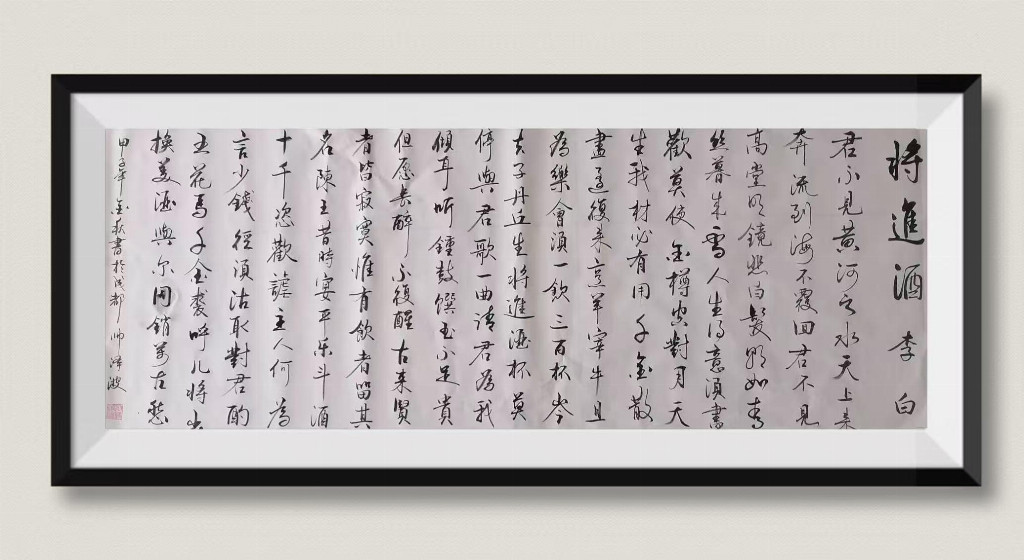 將進酒 李白
君不見黃河之水天上来
奔流到海不覆回君不見
高堂明鏡悲白髮朝如青
丝暮成雪人生得意須盡
歡莫使金樽空對月天
生我材必有用千金散
盡還復来烹羊宰牛且
為樂會須一飲三百杯岑
夫子丹丘生將進酒杯莫
停與君歌一曲請君為我
傾耳听鐘鼓饌玉不足貴
但愿長醉不復醒古来賢
者皆寂寞惟有飲者留其
名陳王昔時宴平乐斗酒
十千恣歡謔主人何為
言少錢徑須沽取對君酌
五花馬千金裘呼儿將出
換美酒與尔同銷萬古愁
甲子年金秋書於成都 帅泽波